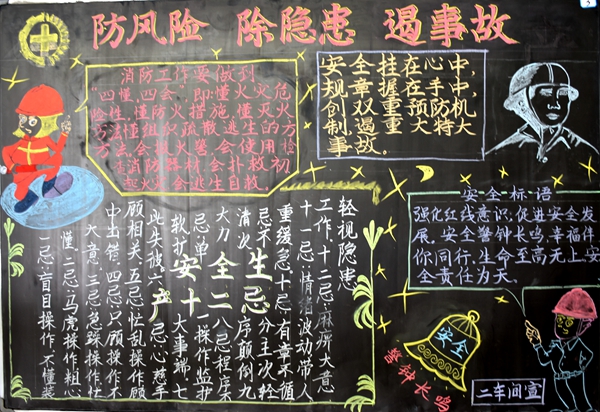 防风险 除隐患 遏事故
消防工作要做到
"四懂,四会",即:懂火灾危
险性,懂防火措施,懂灭火
方法懂组织疏散逃生的方
会报火警,会使用检
查消防器材,会扑救初
起火灾会逃生自救。
安全挂在心中,
规章握在手中,
创双重预防机
制遏重大特大
事故。
安全标语
强化红线意识,促进安全发
展,安全警钟长鸣,幸福伴
你同行,生命至高无上安
全责任为天。
安全生产十二忌
一忌:盲目操作,不懂装
懂,二忌:马虎操作,粗心
大意,三忌:急躁操作,忙
中出错,四忌:只顾操作,不
顾相关,五忌:忙乱操作,顾
此失彼六忌:心慈手
软扩大事端,七
忌:单一操作,监护
八忌程序不
清次序颠倒九
忌不分主次轻
重缓急十忌:有章不循
十一忌:情绪波动带人
工作,十二忌:麻痹大意
轻视隐患
安全
警钟长鸣
二车间宣